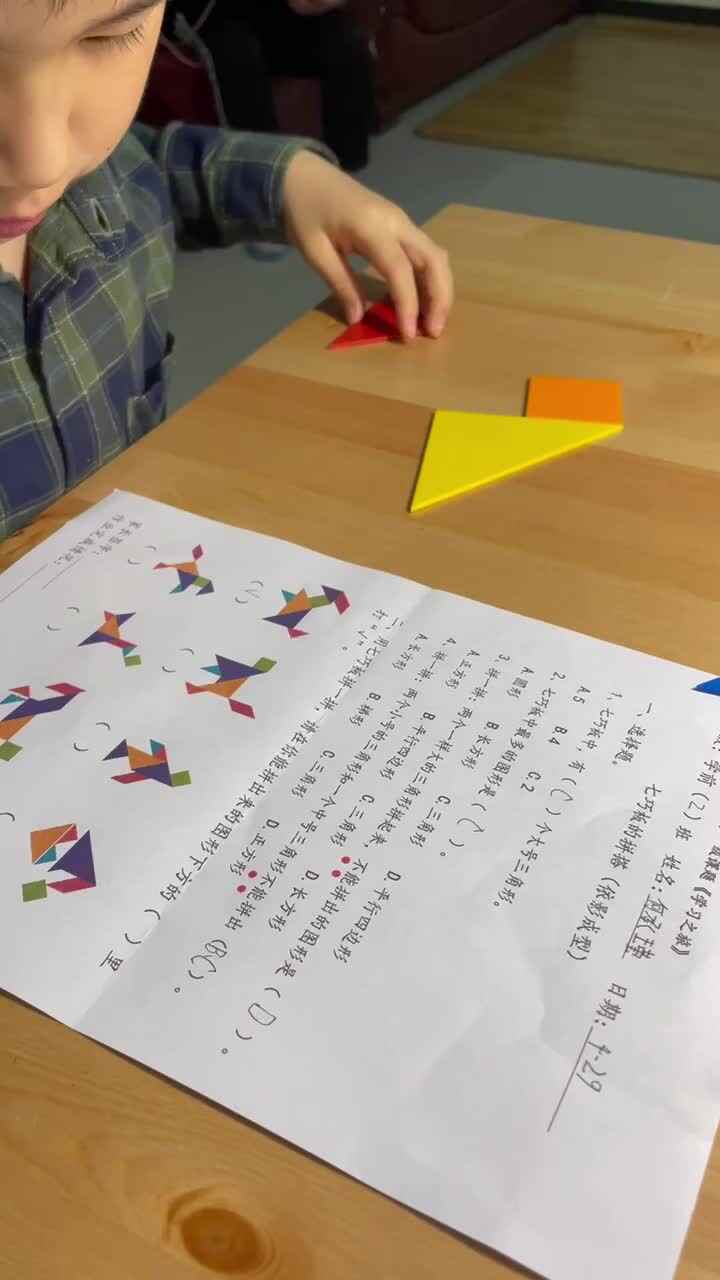 数课题《学习之旅》
学前（2）班 姓名： 日期：4-29
七巧板的拼搭（依影成型）
一、选择题。
1. 七巧板中，有（C）个大号三角形。
A.5 B.4 C.2
2. 七巧板中最多的图形是（C）。
A.圆形 B.长方形 C.三角形
3. 拼一拼：两个一样大的三角形拼起来，不能拼出的图形是（D）。
A.正方形 B.平行四边形 C.三角形 D.长方形
4. 拼一拼：两个小号的三角形和一个中号三角形不能拼出（）。
A.长方形 B.梯形 C.三角形 D.正方形
二、用七巧板拼一拼，请在你能拼出来的图形下方的（ ）里打“√”。
（√）
（ ）
（ ）
（ ）
（ ）
作业完成情况：
家长签字：